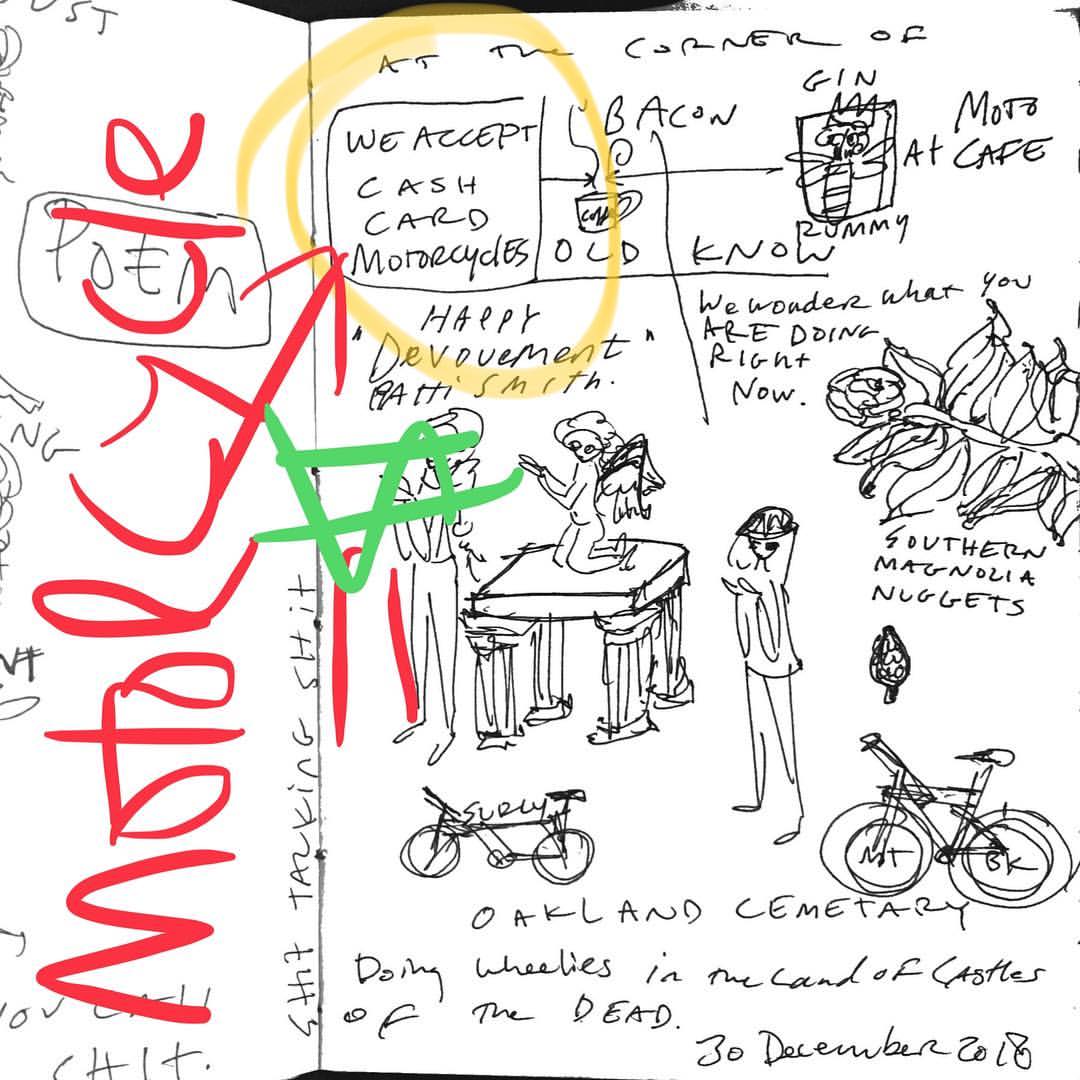 UST
POEM
NG
YOU CALL
SHIT.
MotoRCycle
SHIT TALKING SHIT
AT the CORNER OF
WE ACCEPT
CASH
CARD
MOTORCYCLES
BACON
OLD
KNOW
GIN
RUMMY
MOTO
At CAFE
HAPPY
"DeVouement"
PATTI SMITH.
We wonder what you
ARE DOING
RIGHT
NOW.
SOUTHERN
MAGNOLIA
NUGGETS
SURLY
MT
BK
OAKLAND CEMETARY
Doing wheelies in the Land of Castles
of the DEAD.
30 December 2018